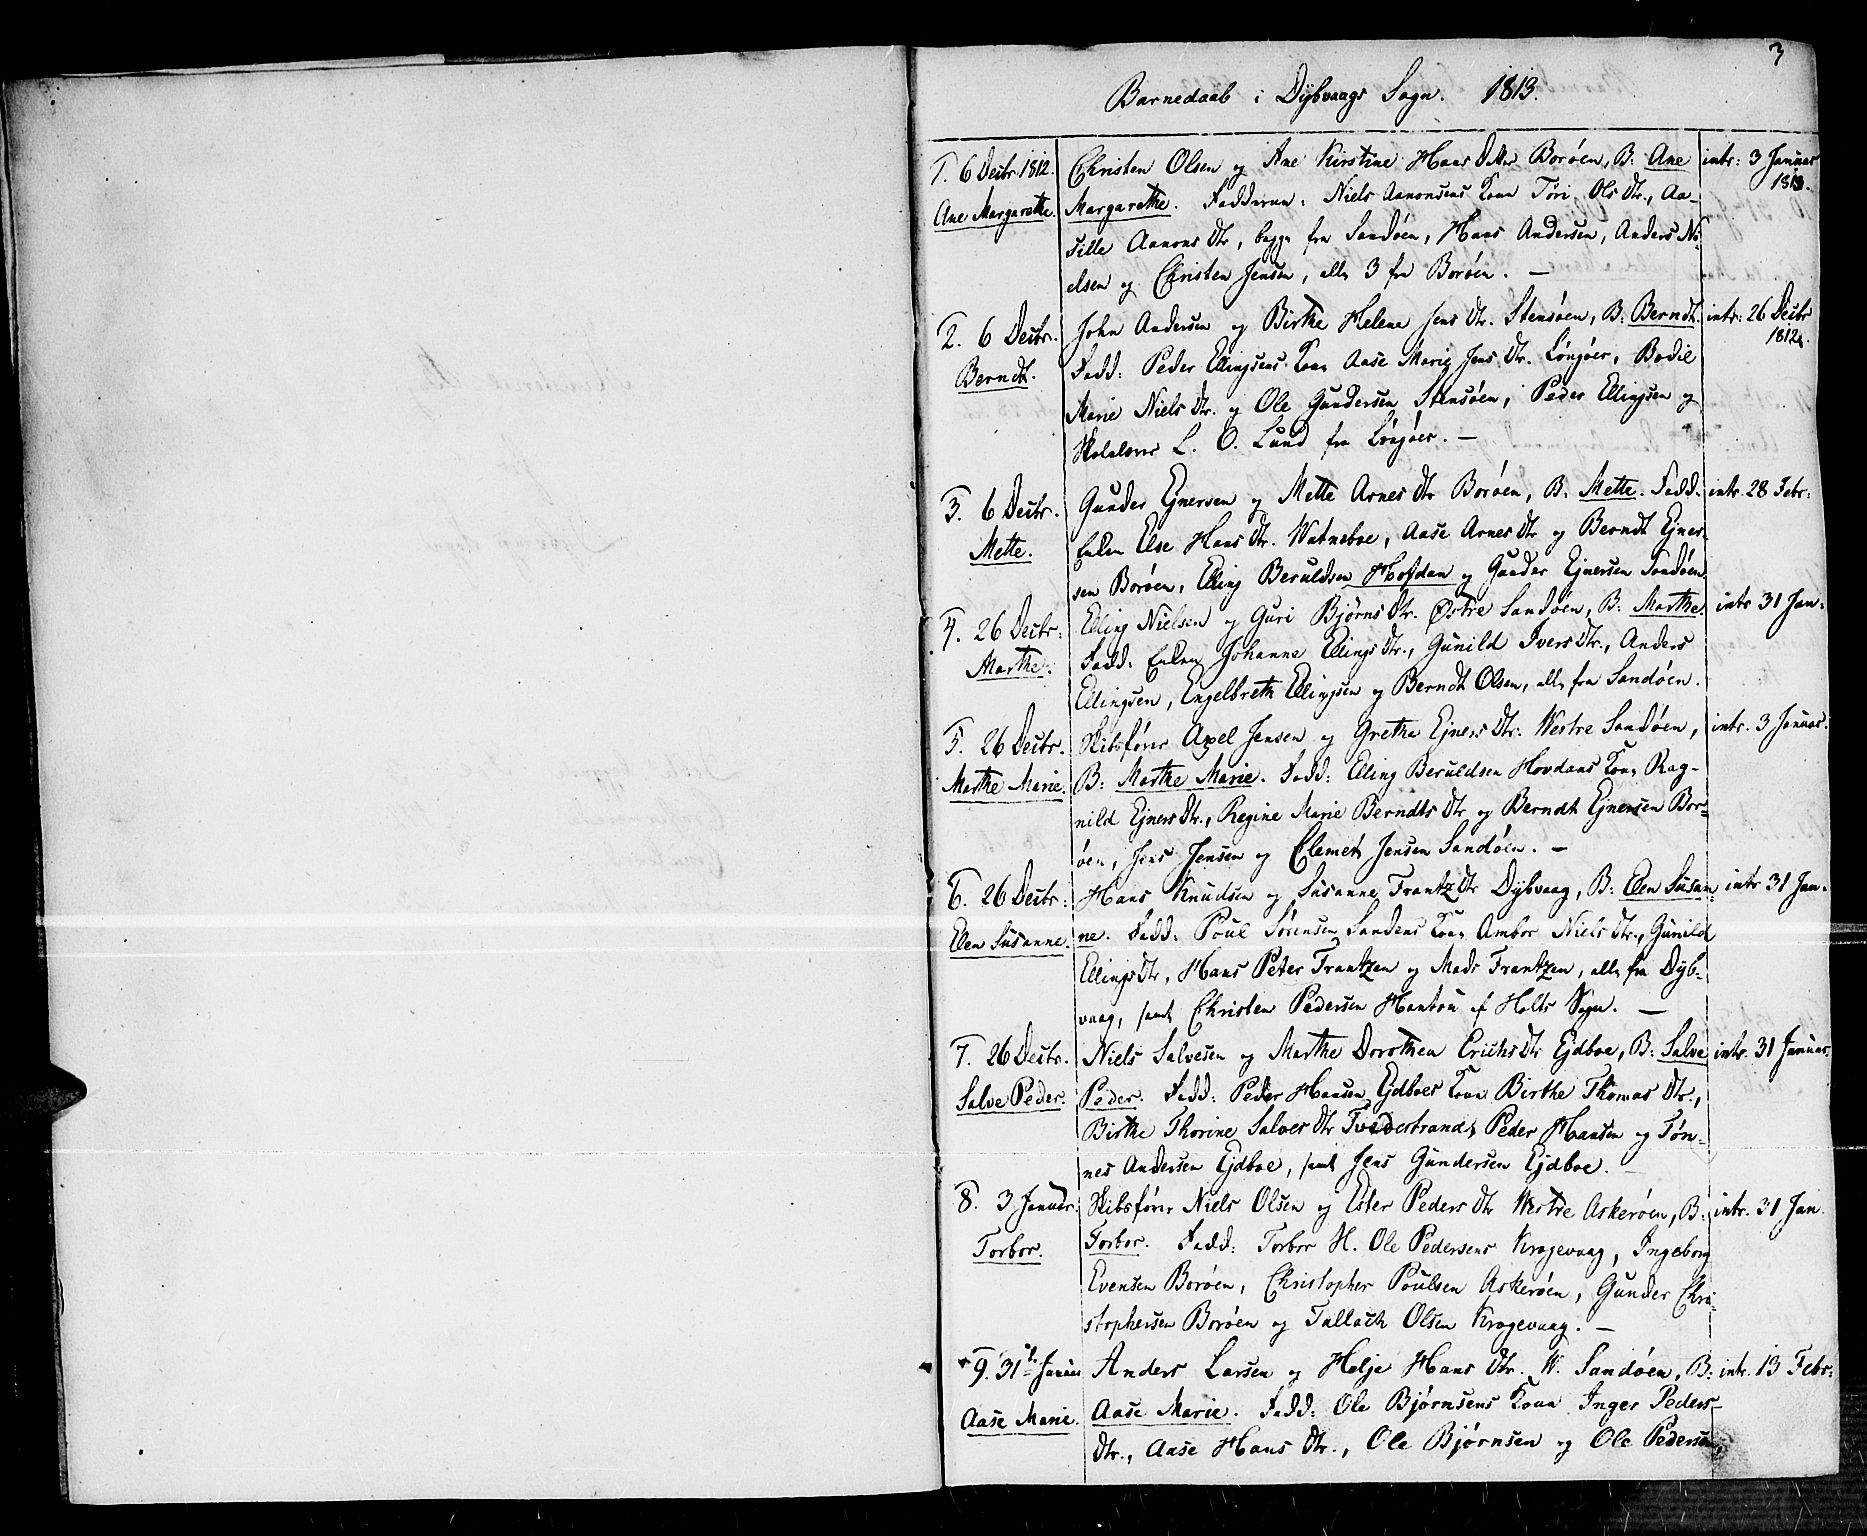 3
Barnedaab i Dÿbvaags Sogn. 1813.
1. 6 Decbr 1812. Christen Olsen og Ane Kirstine Hans Datter Borøen, B: Ane intr: 3 Januar
Ane Margarethe. Margarethe. Fadderne: Niels Aanonsens Kone Töri Ols Dtr., Aa- 1813.
sille Aanons Dtr, begge fra Sandøen, Hans Andersen, Anders Ni-
elsen og Christen Jensen, alle 3 fra Borøen. —
2. 6 Decbr. John Andersen og Birthe Helene Jens Dtr. Stensøen, B: Berndt. intr: 26 Decbr
Berndt. Fadd: Peder Ellingsens Kone Aase Marie Jens Dtr. Löngöer, Bodil 1812.
Marie Niels Dtr. og Ole Gundersen Stensøen, Peder Ellingsen og
Skolelærer L. O. Lund fra Löngöer. —
3. 6 Decbr. Gunder Ejnersen og Mette Arnes Dtr Borøen, B: Mette. Fadd. intr. 28 Febr:
Mette. Enken Else Hans Dtr. Watneboe, Aase Arnes Dtr og Berndt Ejner-
sen Borøen, Elling Beruldsen Hofdan og Gunder Ejnersen Sandøen
4. 26 Decbr: Elling Nielsen og Guri Bjørns Dtr. Østre Sandøen, B: Marthe. intr 31 Jan:
Marthe. Fadd: Enken Johanne Ellings Dtr., Gunild Ivers Dtr., Anders
Ellingsen, Engelbreth Ellingsen og Berndt Olsen, alle fra Sandøen.
5. 26 Decbr. Skibsfører Axel Jensen og Grethe Ejners Dtr. Westre Sandøen, intr. 3 Januar.
Marthe Marie. B: Marthe Marie. Fadd: Elling Beruldsen Hovdans Kone Rag-
nild Ejners Dtr., Regine Marie Berndts Dtr og Berndt Ejnersen Bor-
øen, Jens Jensen og Clemet Jensen Sandøen. —
6. 26 Decbr: Hans Knudsen og Susanne Frantz Dtr Dÿbvaag, B: Elen Susan- intr 31 Jan.
Elen Susanne. ne. Fadd: Poul Sørensen Sandens Kone Ambor Niels Dtr., Gunild
Ellings Dtr, Hans Peter Frantzen og Mads Frantzen, alle fra Dÿb-
vaag, samt Christen Pedersen Hantou af Holts Sogn. —
7. 26 Decbr. Niels Salvesen og Marthe Dorothea Erichs Dtr Ejdboe, B: Salve intr. 31 Januar.
Salve Peder. Peder. Fadd: Peder Hansen Ejdboes Kone Birthe Thomas Dtr.,
Birthe Thorine Salves Dtr Tvedestrand, Peder Hansen og Tön-
nes Andersen Ejdboe, samt Jens Gundersen Ejdboe.
8. 3 Januar. Skibsfører Niels Olsen og Ester Peders Dtr Westre Askerøen, B: intr. 31 Jan.
Torbor. Torbor. Fadd: Torbor H. Ole Pedersens Krogevaag, Ingeborg
Evensen Borøen, Christopher Poulsen Askerøen, Gunder Chri-
stophersen Borøen og Tallach Olsen Krogevaag. —
9. 31 Januar Anders Larsen og Helje Hans Dtr. W. Sandøen, B: intr. 13 Febr:
Aase Marie. Aase Marie. Fadd: Ole Bjørnsens Kone Inger Peders-
Dtr., Aase Hans Dtr., Ole Bjørnsen og Ole Pedersen,